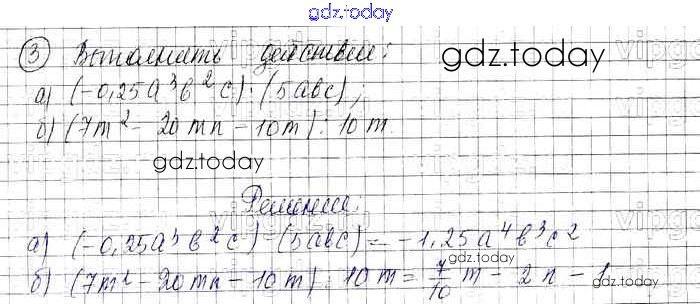 gdz.today
③ Выполнить действия:
gdz.today
а) (-0,25a³b²c)·(5abc),
б) (7m² - 20mn - 10m) : 10m
gdz.today
Решение:
а) (-0,25a³b²c)·(5abc) = -1,25a⁴b³c²
б) (7m² - 20mn - 10m) : 10m = 7/10 m - 2n - 1.
gdz.today